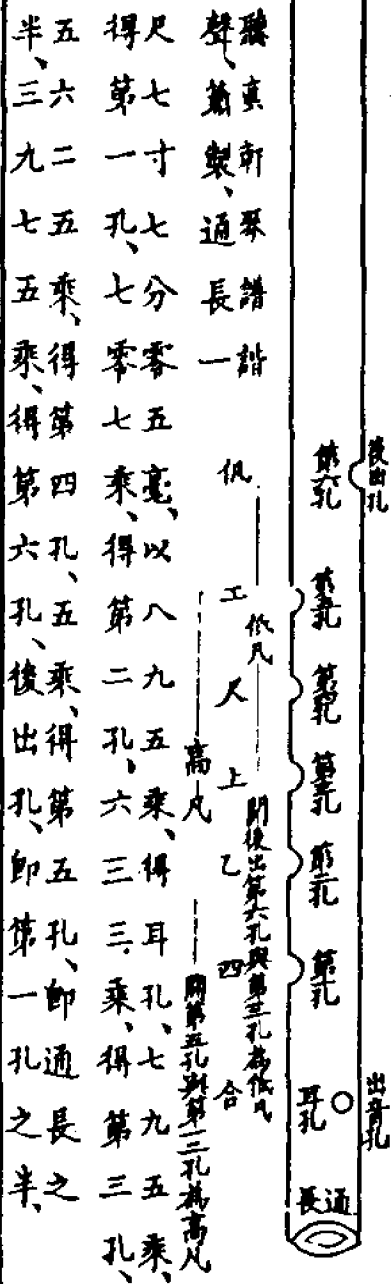 後出孔
出音孔
第六孔
第五孔
第四孔
第三孔
第二孔
第一孔
耳孔
通長
低凡
開後出第六孔與第三孔為低凡
仉
工
尺
上
乙
四
合
高凡
開第五孔與第一二孔為高凡
聽真軒琴譜諧
聲、簫製、通長一
尺七寸七分零五毫、以八九五乘、得耳孔、七九五乘、
得第一孔、七零七乘、得第二孔、六三三乘、得第三孔、
五六二五乘、得第四孔、五乘、得第五孔、即通長之
半、三九七五乘、得第六孔、後出孔、即第一孔之半、